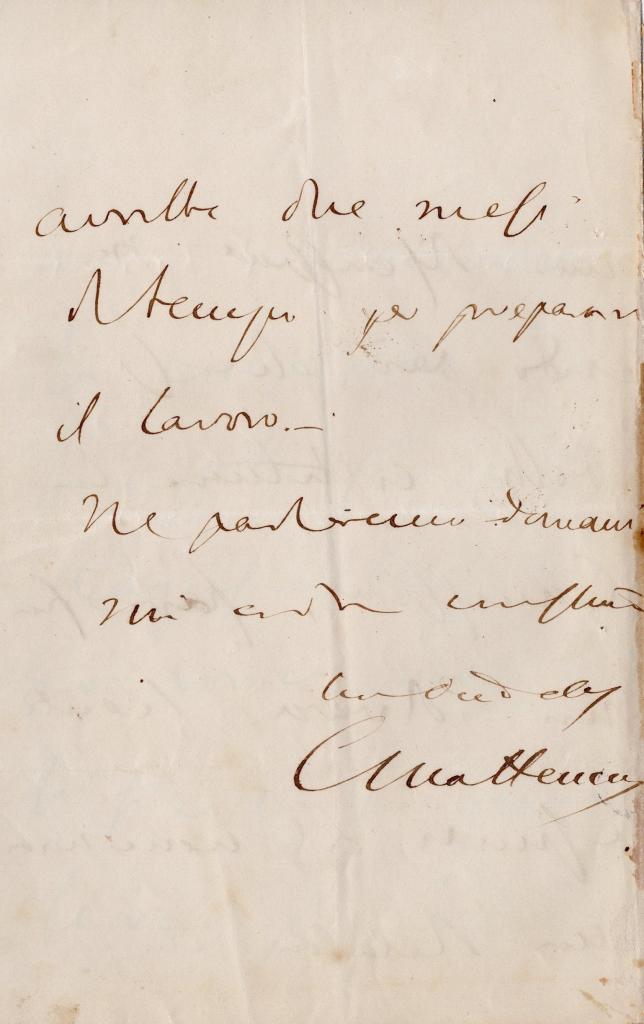 avrebbe due mesi
di tempo per preparare
il lavoro. —
Ne parleremo domani
mi creda
CMatteucci